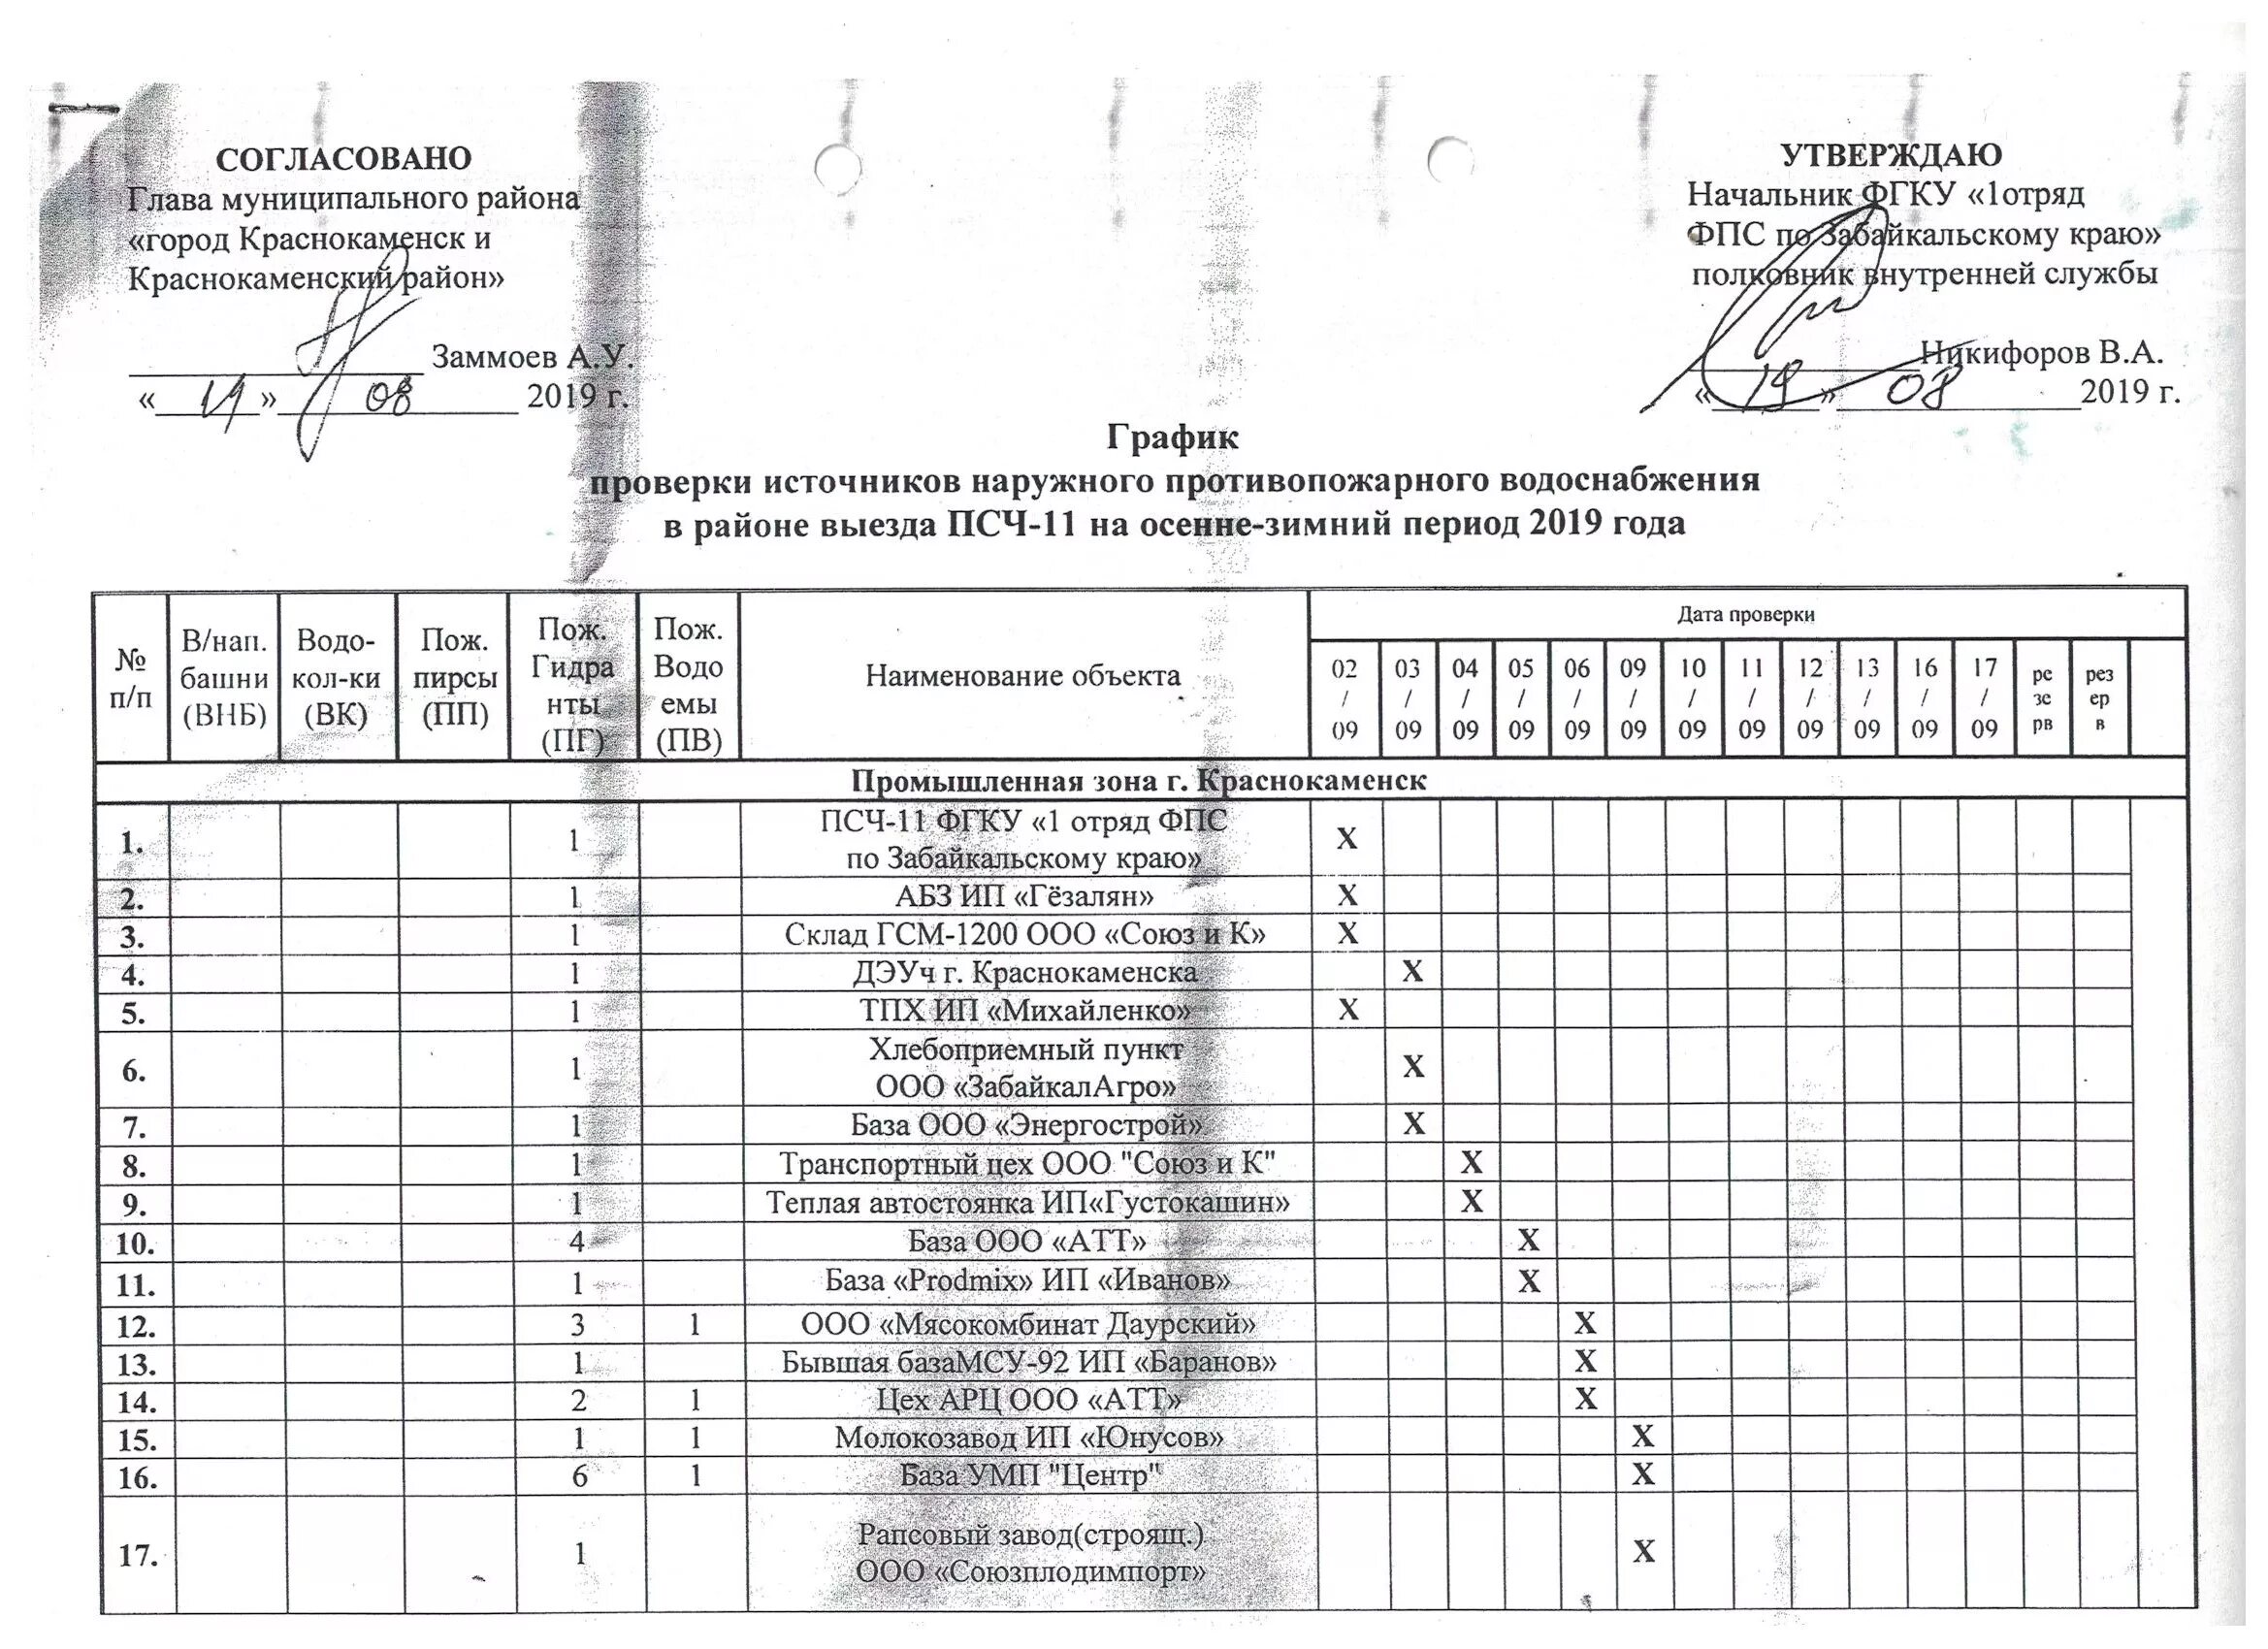 СОГЛАСОВАНО
Глава муниципального района
«город Краснокаменск и
Краснокаменский район»
Заммоев А.У.
«19» 08 2019 г.
УТВЕРЖДАЮ
Начальник ФГКУ «1отряд
ФПС по Забайкальскому краю»
полковник внутренней службы
Никифоров В.А.
«19» 08 2019 г.
График
проверки источников наружного противопожарного водоснабжения
в районе выезда ПСЧ-11 на осенне-зимний период 2019 года
№ п/п В/нап. башни (ВНБ) Водо-кол-ки (ВК) Пож. пирсы (ПП) Пож. Гидранты (ПГ) Пож. Водоемы (ПВ) Наименование объекта Дата проверки
02/09 03/09 04/09 05/09 06/09 09/09 10/09 11/09 12/09 13/09 16/09 17/09 резерв резерв
Промышленная зона г. Краснокаменск
1. 1 ПСЧ-11 ФГКУ «1 отряд ФПС
по Забайкальскому краю» X
2. 1 АБЗ ИП «Гёзалян» X
3. 1 Склад ГСМ-1200 ООО «Союз и К» X
4. 1 ДЭУч г. Краснокаменска X
5. 1 ТПХ ИП «Михайленко» X
6. 1 Хлебоприемный пункт
ООО «ЗабайкалАгро» X
7. 1 База ООО «Энергострой» X
8. 1 Транспортный цех ООО "Союз и К" X
9. 1 Теплая автостоянка ИП«Густокашин» X
10. 4 База ООО «АТТ» X
11. 1 База «Prodmix» ИП «Иванов» X
12. 3 1 ООО «Мясокомбинат Даурский» X
13. 1 Бывшая базаМСУ-92 ИП «Баранов» X
14. 2 1 Цех АРЦ ООО «АТТ» X
15. 1 1 Молокозавод ИП «Юнусов» X
16. 6 1 База УМП "Центр" X
17. 1 Рапсовый завод(строящ.)
ООО «Союзплодимпорт» X